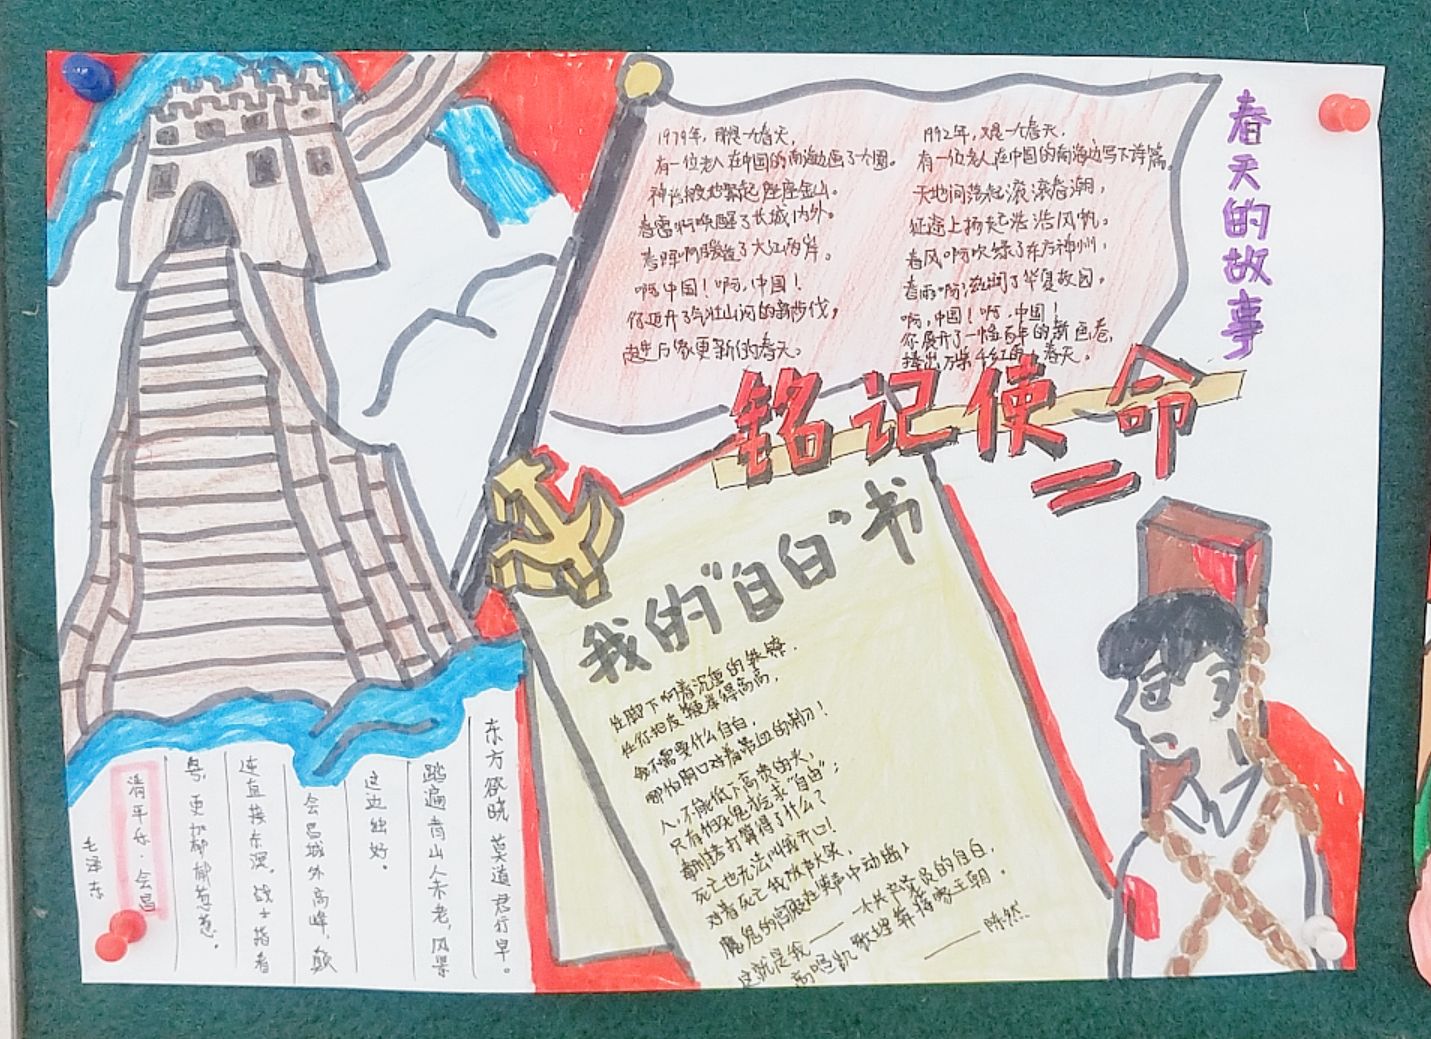 春天的故事
1979年,那是一个春天,
有一位老人在中国的南海边画了一个圈。
神话般地崛起座座金山。
春雷啊唤醒了长城内外。
春晖啊暖透了大江两岸。
啊,中国!啊,中国!
你迈开了气壮山河的新步伐,
走进万象更新的春天。
1992年,又是一个春天,
有一位老人在中国的南海边写下诗篇。
天地间荡起滚滚春潮,
征途上扬起浩浩风帆。
春风啊吹绿了东方神州,
春雨啊滋润了华夏故园。
啊,中国!啊,中国!
你展开了一幅百年的新画卷,
捧出万紫千红的春天。
铭记使命
我的"自白"书
任脚下响着沉重的铁镣,
任你把皮鞭举得高高,
我不需要什么自白,
哪怕胸口对着带血的刺刀!
人,不能低下高贵的头,
只有怕死鬼才乞求"自由";
毒刑拷打算得了什么?
死亡也无法叫我开口!
对着死亡我放声大笑,
魔鬼的宫殿在笑声中动摇;
这就是我——一个共产党员的自白,
高唱凯歌埋葬蒋家王朝。
——陈然
东方欲晓,莫道君行早。
踏遍青山人未老,风景
这边独好。
会昌城外高峰,颠
连直接东溟。战士指看
粤,更加郁郁葱葱。
清平乐·会昌
毛泽东